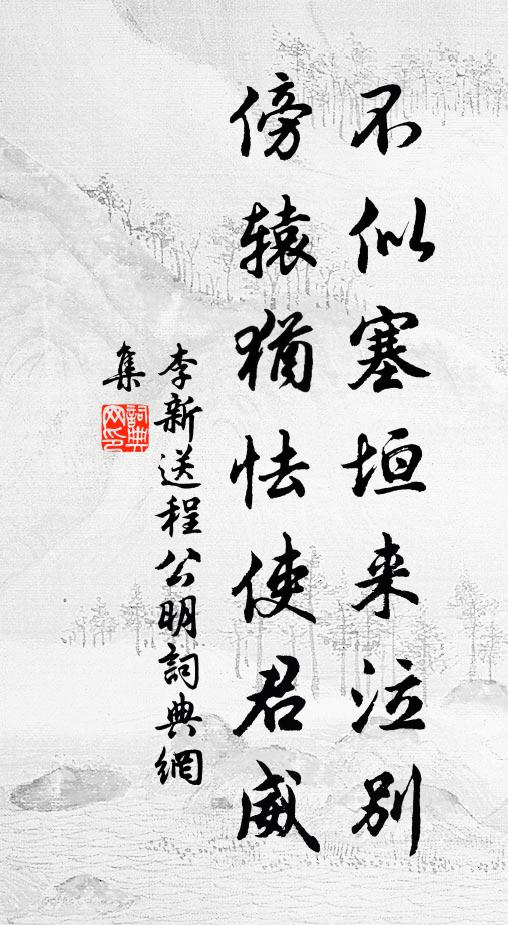 不似塞垣来泣别
傍辕犹怯使君威
李新送程公明詞典網
集
詞典网印